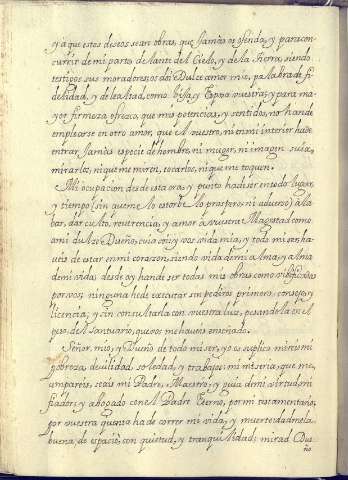 y a que estos deseos sean obras, que jamàs os ofenda, y para con-
currir de mi parte, delante del Cielo, y de la tierra, siendo
testigos sus moradores, os doi Dulce amor mio, palabra de fi-
delidad, y de lealtad, como hija, y Esposa vuestra; y para ma-
yor firmeza ofrezco, que mis potencias, y sentidos, no han de
emplearse en otro amor, que el vuestro, ni en mi interior hà de
entrar jamàs especie de hombre, ni muger, ni imagen suia,
mirarlos, ni que me miren, tocarlos, ni que me toquen.
Mi ocupacion desde esta ora, y punto hà de ser en todo lugar,
y tiempo (sin que me lo estorve lo prospero, ni adverso) ala-
bar, dar culto, reverencia, y amor à vuestra Magestad como
à mi dulze Dueño, cuia soi; y vos vida mia, y todo mi ser, ha-
veis de estar en mi corazon, siendo vida de mi alma, y alma
de mi vida: desde oy han de ser todas mis obras como
por vos; ninguna he de executar sin pediros primero, consejo, y
licencia; y sin consultarla con vuestra luz, pesandola en el
peso, del Santuario, que vos me haveis enseñado.
Señor mio, y Dueño de todo mi ser, yo os suplico mireis mi
pobreza, devilidad, soledad, y trabajos; mi miseria, que me
ampareis, seais mi Padre, Maestro, y guia de mi virtud, mi
fiador, y abogado con el Padre Eterno, por mi testamentario,
por vuestra quenta hà de correr mi vida, y muerte: dadmela
buena, de espacio, con quietud, y tranquilidad; mirad Due-
ño